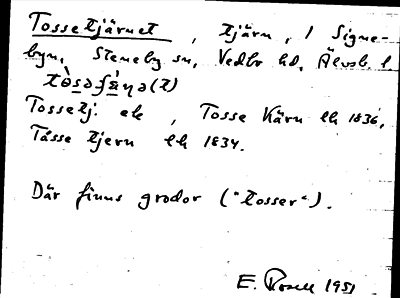 Tossetjärnet, tjärn, i Signe-
byn, Steneby sn, Vedbo hd, Älvsb. l
Tossetj. ek, Tosse Kärn lk 1836,
Tåsse tjern lk 1834.
Där finns grodor ("tosser").
E. Rosell 1951